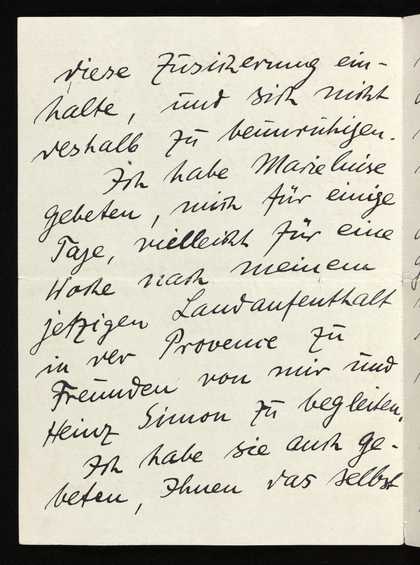 diese Zusicherung ein-
halte, und sich nicht
deshalb zu beunruhigen.
Ich habe Marieluise
gebeten, mich für einige
Tage, vielleicht für eine
Woche nach meinem
jetzigen Landaufenthalt
in der Provence zu
Freunden von mir und
Heinz Simon zu begleiten.
Ich habe sie auch ge-
beten, Ihnen das selbst